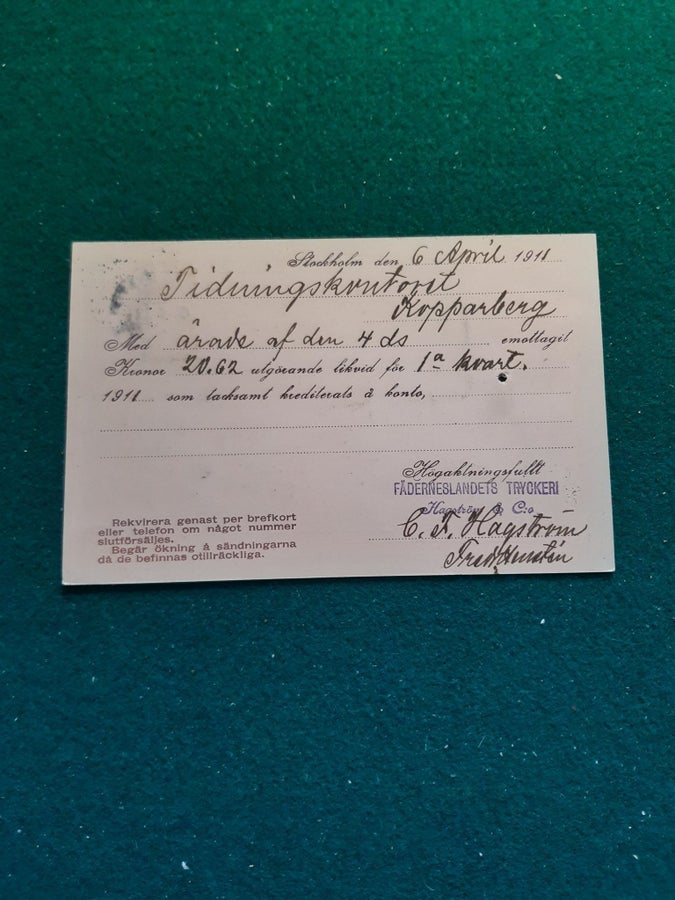 Stockholm den 6 April 1911
Tidningskontoret
Kopparberg
Med ärade af den 4 ds emottagit
Kronor 20.62 utgörande likvid för 1a kvart.
1911 som tacksamt krediterats å konto,
Högaktningsfullt
FÄDERNESLANDETS TRYCKERI
Hagström & C:o.
C. F. Hagström
Rekvirera genast per brefkort
eller telefon om något nummer
slutförsäljes.
Begär ökning å sändningarna
då de befinnas otillräckliga.